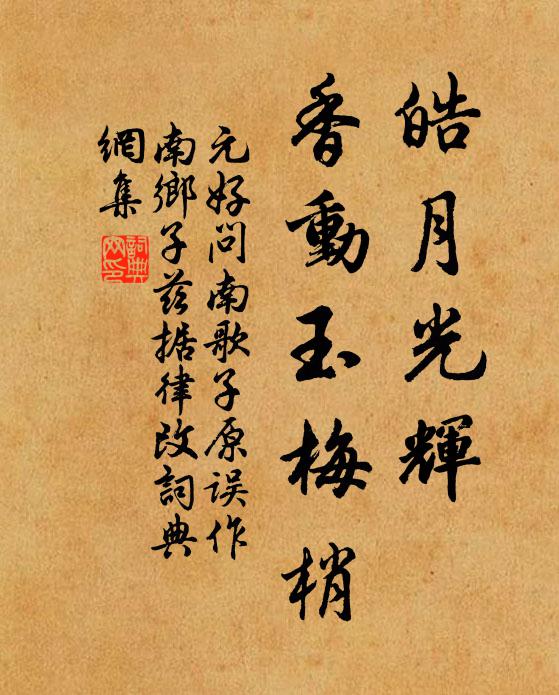 皓月光輝
香動玉梅梢
元好问南歌子原误作
南鄉子兹据律改詞典
網集
詞典网印